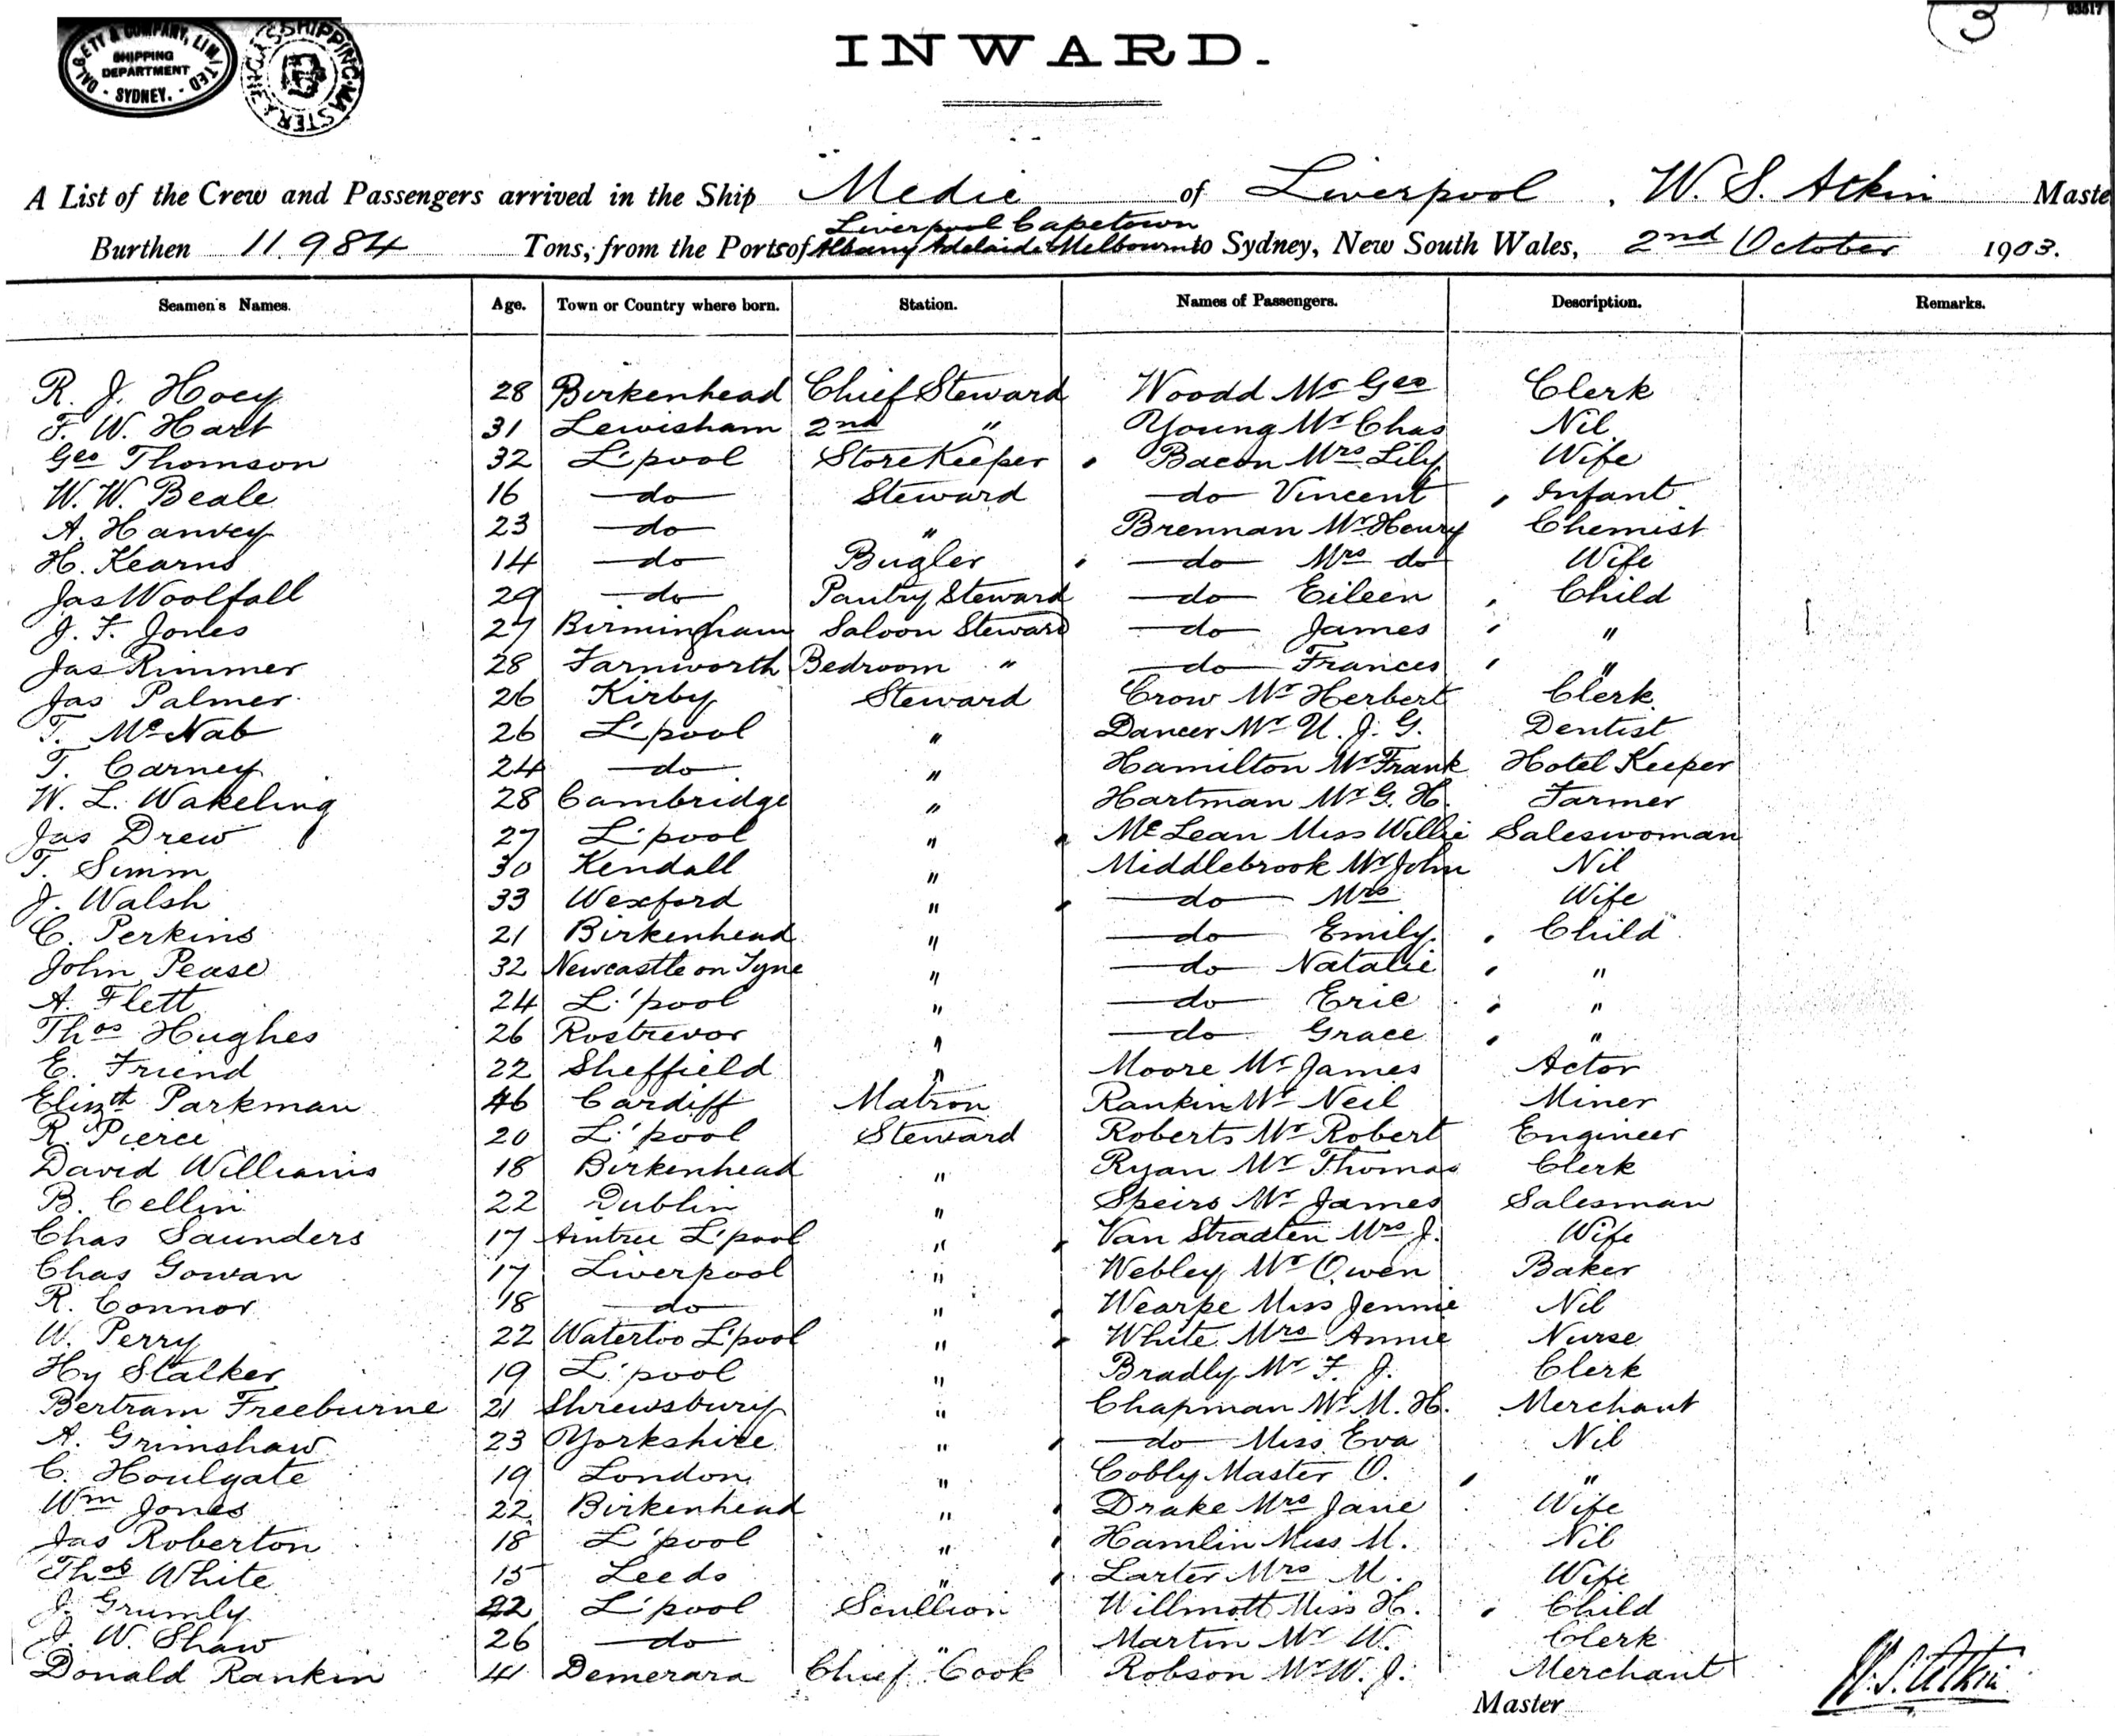 DALGETY & COMPANY, LIMITED
SHIPPING
DEPARTMENT
SYDNEY.
SHIPPING MASTER
3
03517
INWARD.
A List of the Crew and Passengers arrived in the Ship Medic of Liverpool, W. S. Atkin Maste
Liverpool Capetown
Burthen 11.984 Tons, from the Ports of Albany Adelaide & Melbourne to Sydney, New South Wales, 2nd October 1903.
Seamen's Names. Age. Town or Country where born. Station. Names of Passengers. Description. Remarks.
R. J. Hoey 28 Birkenhead Chief Steward Woodd Mr Geo Clerk
F. W. Hart 31 Lewisham 2nd " Young Mr Chas Nil
Geo Thomson 32 L'pool StoreKeeper Bacon Mrs Lily Wife
W. W. Beale 16 do Steward do Vincent Infant
A. Hanvey 23 do " Brennan Mr Henry Chemist
H. Kearns 14 do Bugler do Mrs do Wife
Jas Woolfall 29 do Pantry Steward do Eileen Child
J. F. Jones 27 Birmingham Saloon Steward do James "
Jas Rimmer 28 Farnworth Bedroom " do Frances "
Jas Palmer 26 Kirby Steward Crow Mr Herbert Clerk
T. McNab 26 L'pool " Dancer Mr U. J. G. Dentist
T. Carney 24 do " Hamilton Mr Frank Hotel Keeper
W. L. Wakeling 28 Cambridge " Hartman Mr G. H. Farmer
Jas Drew 27 L'pool " McLean Miss Willie Saleswoman
T. Simm 30 Kendall " Middlebrook Mr John Nil
J. Walsh 33 Wexford " do Mrs Wife
C. Perkins 21 Birkenhead " do Emily Child
John Pease 32 Newcastle on Tyne " do Natalie "
A. Flett 24 L'pool " do Eric "
Thos Hughes 26 Rostrevor " do Grace "
E. Friend 22 Sheffield " Moore Mr James Actor
Elizth Parkman 46 Cardiff Matron Rankin Mr Neil Miner
R. Pierce 20 L'pool Steward Roberts Mr Robert Engineer
David Williams 18 Birkenhead " Ryan Mr Thomas Clerk
B. Cellin 22 Dublin " Speirs Mr James Salesman
Chas Saunders 17 Aintree L'pool " Van Straaten Mrs J. Wife
Chas Gowan 17 Liverpool " Webley Mr Owen Baker
R. Connor 18 do " Wearpe Miss Jennie Nil
W. Perry 22 Waterloo L'pool " White Mrs Annie Nurse
Hy Stalker 19 L'pool " Bradly Mr F. J. Clerk
Bertram Freeburne 21 Shrewsbury " Chapman Mr M. H. Merchant
A. Grimshaw 23 Yorkshire " do Miss Eva Nil
C. Houlgate 19 London " Cobly Master O. "
Wm Jones 22 Birkenhead " Drake Mrs Jane Wife
Jas Roberton 18 L'pool " Hamlin Miss M. Nil
Thos White 15 Leeds " Larter Mrs M. Wife
J. Grumly 22 L'pool Scullion Willmott Miss H. Child
J. W. Shaw 26 do " Martin Mr W. Clerk
Donald Rankin 41 Demerara Chief Cook Robson Mr W. J. Merchant
Master W. S. Atkin